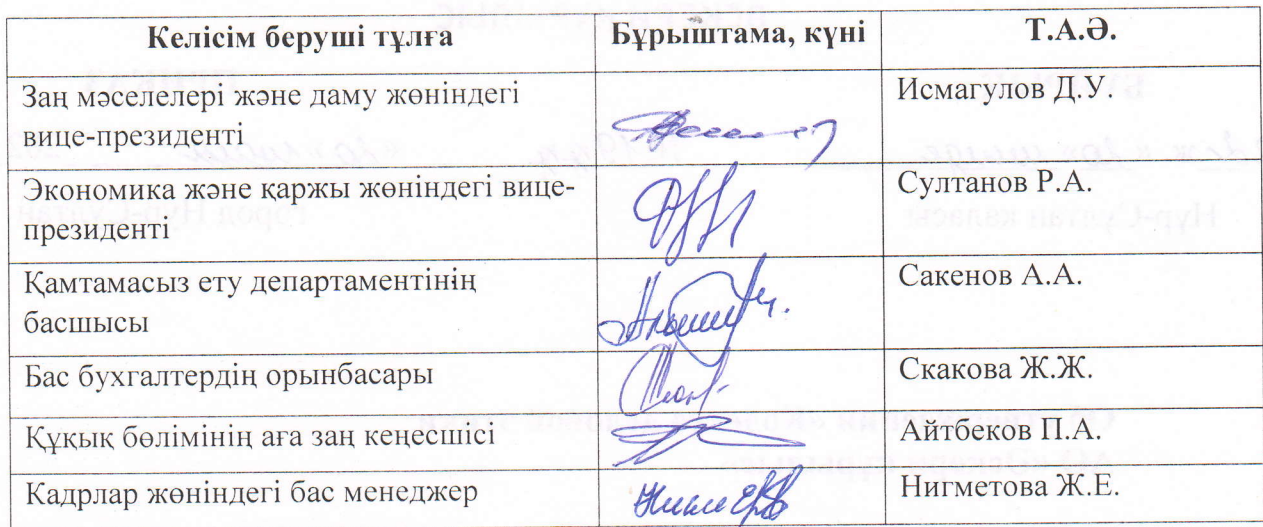 Келісім беруші тұлға Бұрыштама, күні Т.А.Ә.
Заң мәселелері және даму жөніндегі Исмагулов Д.У.
вице-президенті
Экономика және қаржы жөніндегі вице- Султанов Р.А.
президенті
Қамтамасыз ету департаментінің Сакенов А.А.
басшысы
Бас бухгалтердің орынбасары Скакова Ж.Ж.
Құқық бөлімінің аға заң кеңесшісі Айтбеков П.А.
Кадрлар жөніндегі бас менеджер Нигметова Ж.Е.